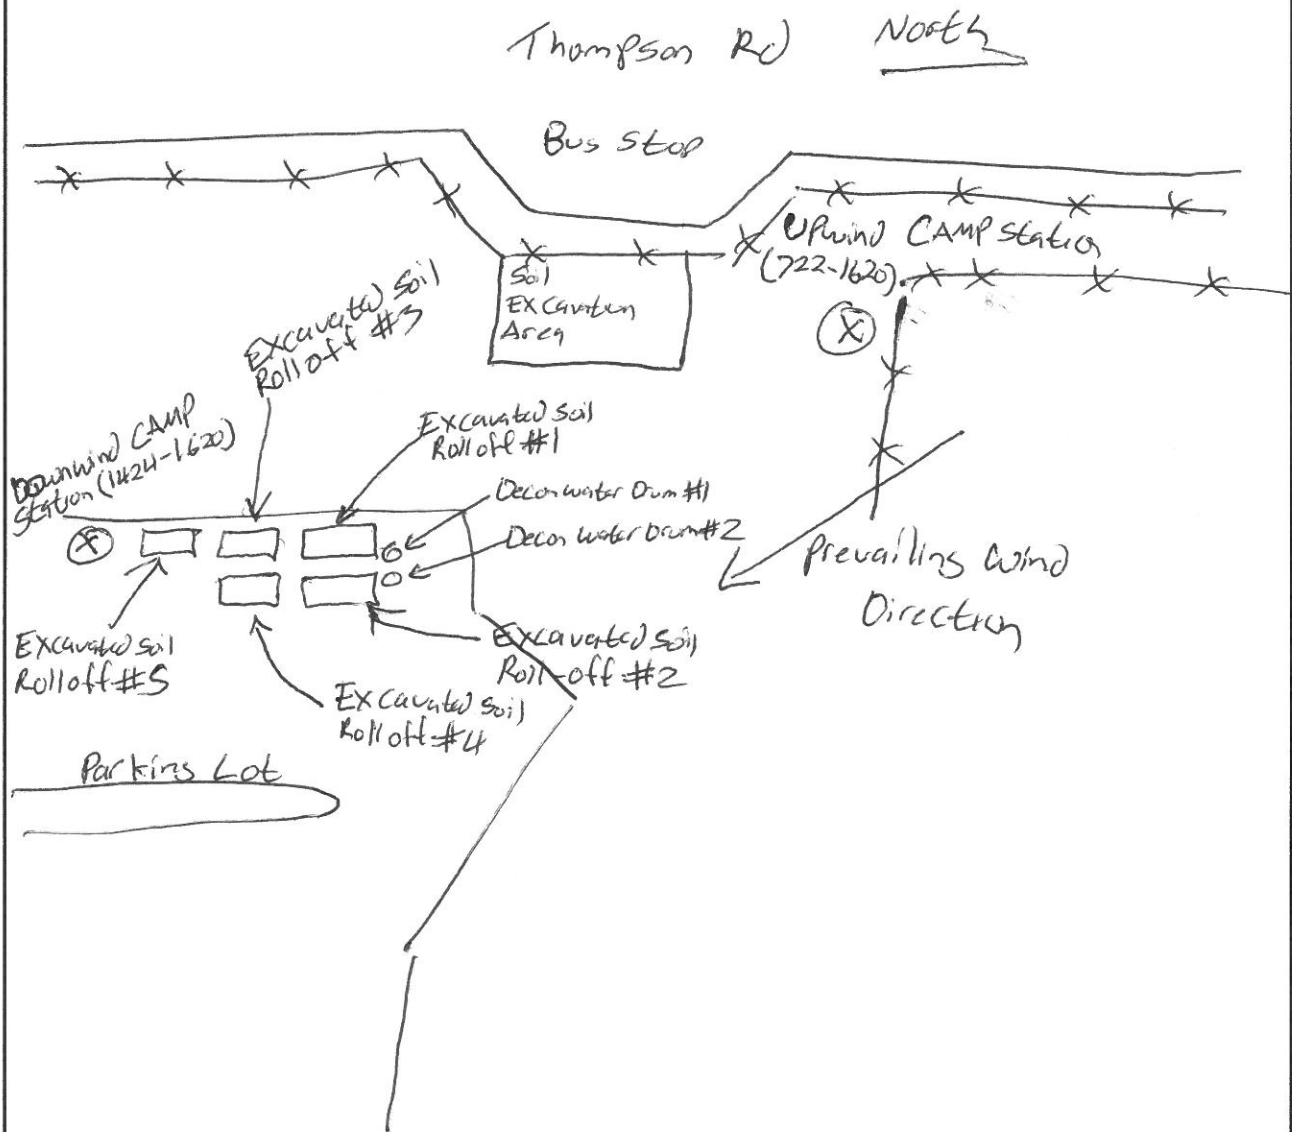 Thompson Rd
North
Bus Stop
Upwind CAMP Station
(722-1620)
Soil
Excavation
Area
Excavated Soil
Roll off #3
Excavated Soil
Roll off #1
Downwind CAMP
Station (1424-1620)
Decon water Drum #1
Decon Water Drum #2
Prevailing Wind
Direction
Excavated Soil
Roll off #5
Excavated Soil
Roll-off #2
Excavated Soil
Roll off #4
Parking Lot